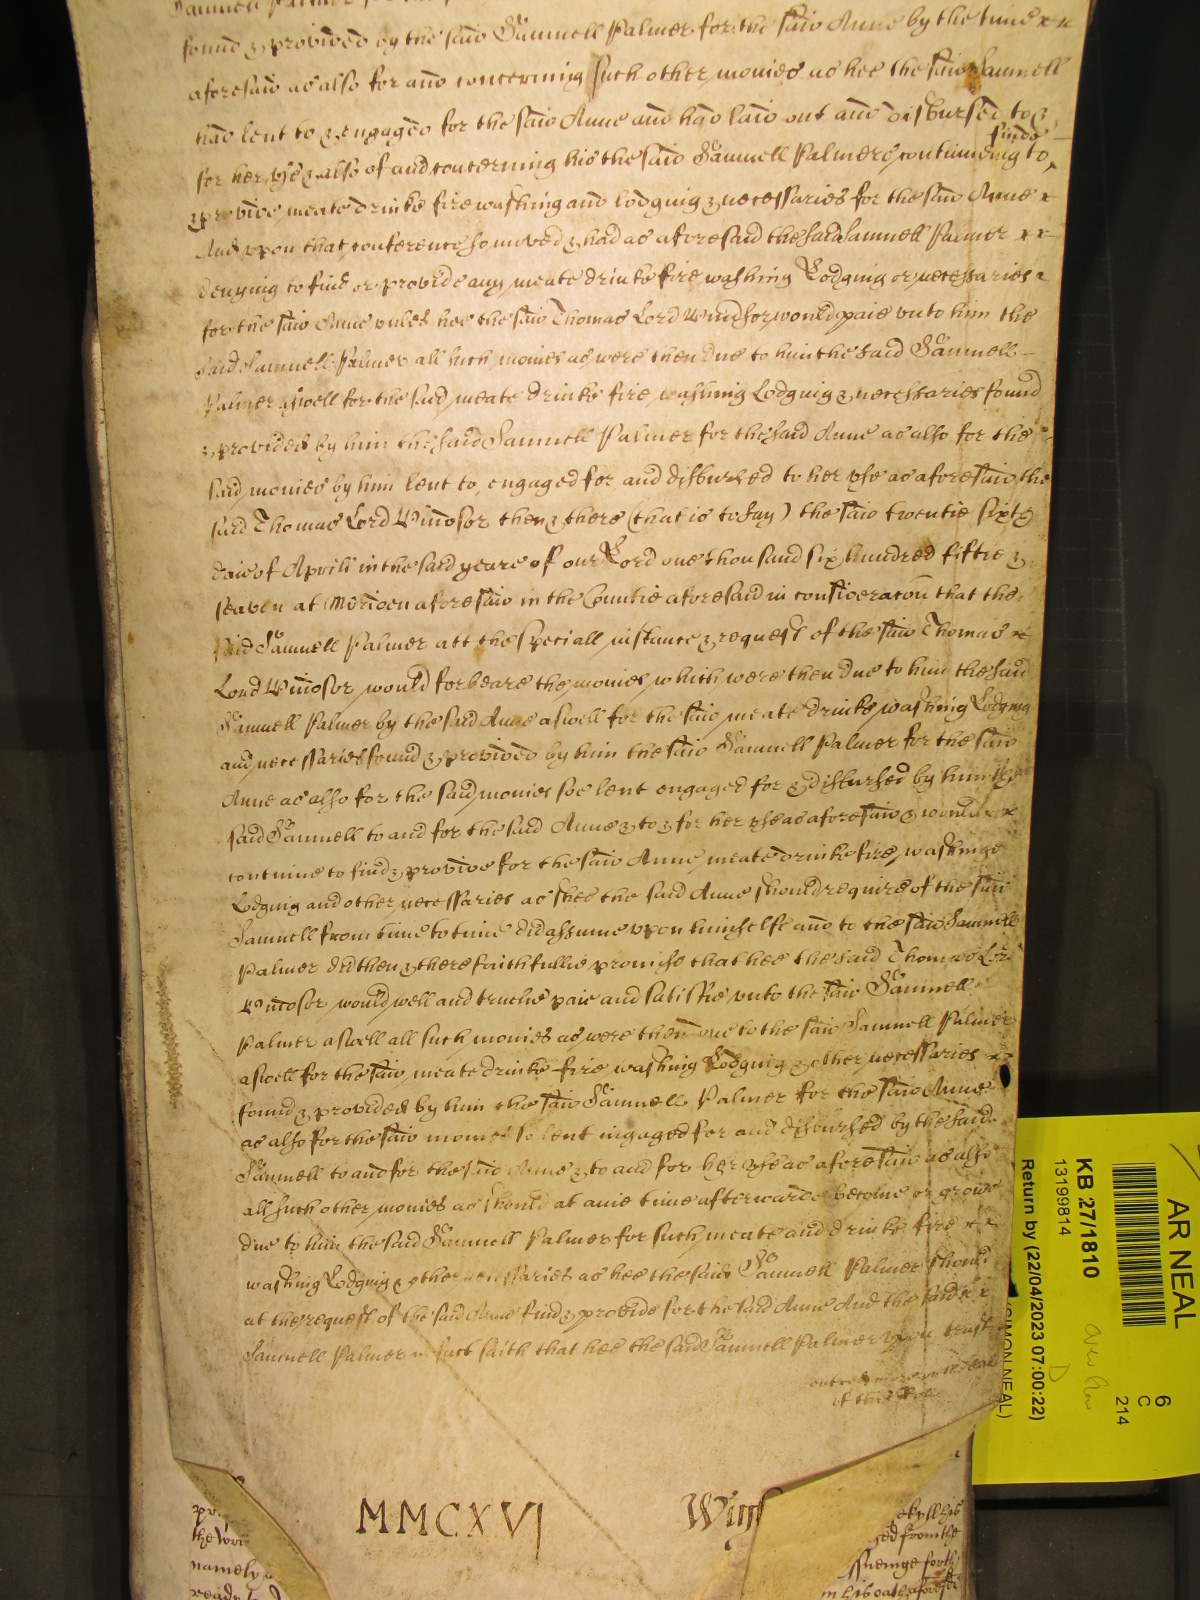 Samuell Palmer
found & provided by the said Samuell Palmer for the said Anne by the time
aforesaid as also for and concerning such other monies as hee the said Samuell
had lent to & engaged for the said Anne and had laid out and disbursed to &
for her vse & also of and concerning his the said Samuell Palmers continueing to
finde
& provide meate drinke fire washing and lodging & necessaries for the said Anne
And vpon that conference so moved & had as aforesaid the said Samuell Palmer
denying to find or provide any meate drinke fire washing Lodging or necessaries
for the said Anne vnles hee the said Thomas Lord Windsor would paie vnto him the
said Samuell Palmer all such monies as were then due to him the said Samuell
Palmer aswell for the said meate drinke fire washing Lodging & necessaries found
& provided by him the said Samuell Palmer for the said Anne as also for the
said monies by him lent to, engaged for and disbursed to her vse as aforesaid the
said Thomas Lord Windsor then & there (that is to say) the said twentie sixth
daie of Aprill in the said yeare of our Lord one thousand six hundred fiftie &
seaven at Meriden aforesaid in the Countie aforesaid in consideracon that the
said Samuell Palmer att the speciall instance & request of the said Thomas
Lord Windsor would forbeare the monies which were then due to him the said
Samuell Palmer by the said Anne aswell for the said meate drinke washing Lodging
and necessaries found & provided by him the said Samuell Palmer for the said
Anne as also for the said monies soe lent engaged for & disbursed by him the
said Samuell to and for the said Anne & to & for her vse as aforesaid & would
continue to find & provide for the said Anne meate drinke fire washinge
Lodging and other necessaries as shee the said Anne should require of the said
Samuell from time to time did assume vpon himselfe and to the said Samuell
Palmer did then & there faithfullie promise that hee the said Thomas Lord
Windsor would well and trulie paie and satisfie vnto the said Samuell
Palmer aswell all such monies as were then due to the said Samuell Palmer
aswell for the said meate drinke fire washing Lodging & other necessaries
found & provided by him the said Samuell Palmer for the said Anne
as also for the said monies so lent ingaged for and disbursed by the said
Samuell to and for the said Anne & to and for her vse as aforesaid as also
all such other monies as should at anie time afterwards become or growe
due to him the said Samuell Palmer for such meate and drinke fire
washing Lodging & other necessaries as hee the said Samuell Palmer should
at the request of the said Anne find & provide for the said Anne And the said
Samuell Palmer in fact saith that hee the said Samuell Palmer vpon trust
of this Roll
MMCXVI
the
namely
ged from the
ssueinge forth
in his oath aforesd
AR NEAL
6
C
214
KB 27/1810
13199814
Return by (22/04/2023 07:00:22)
(SIMON NEAL)